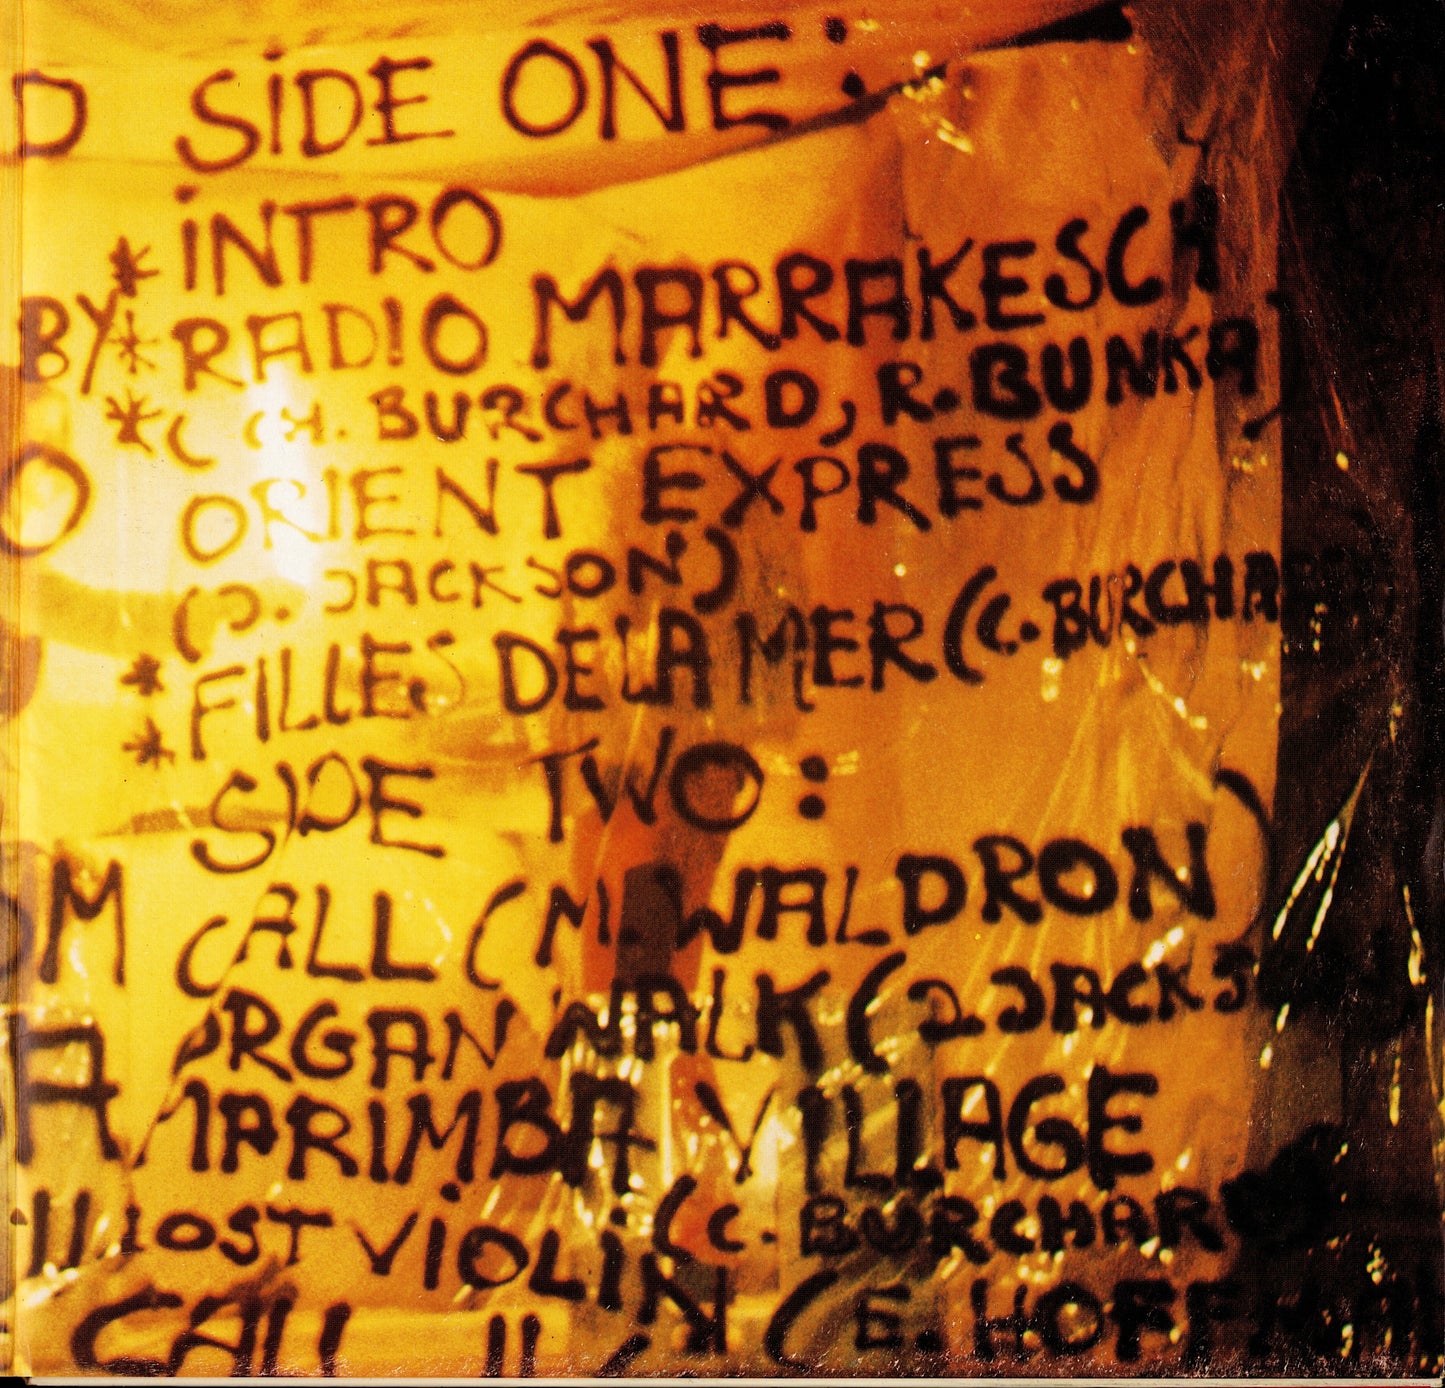 D SIDE ONE:
* INTRO
BY * RADIO MARRAKESCH
* (CH. BURCHARD, R. BUNKA)
O ORIENT EXPRESS
(J. JACKSON)
* FILLES DE LA MER (C. BURCHARD
*
SIDE TWO:
M CALL (M. WALDRON)
ORGAN WALK (J. JACKS
A MARIMBA VILLAGE
LOST VIOLIN (C. BURCHARD
CALL II (E. HOFFMA